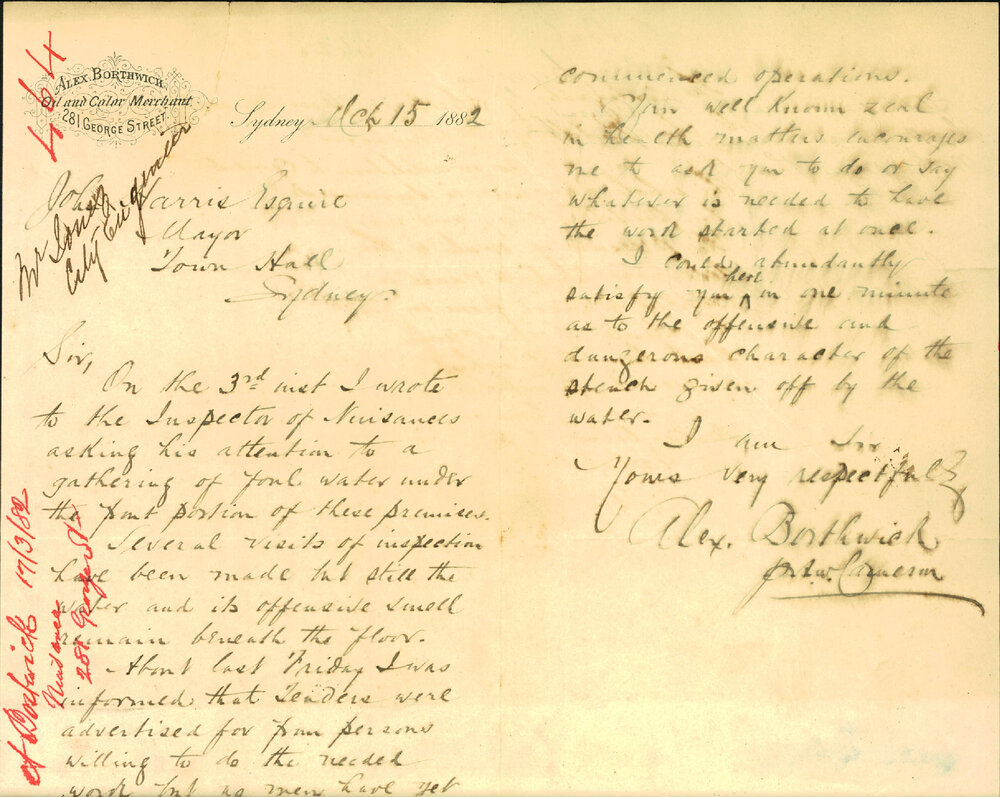 464
ALEX. BORTHWICK
Oil and Color Merchant
281 GEORGE STREET.
Sydney 15 1882
Mr Jones
City Engineer
John Harris Esquire
Mayor
Town Hall
Sydney.
Sir,
On the 3rd inst I wrote
to the Inspector of Nuisances
asking his attention to a
gathering of foul water under
the front portion of these premises.
Several visits of inspection
have been made but still the
water and its offensive smell
remain beneath the floor.
About last Friday I was
informed that Tenders were
advertised for from persons
willing to do the needed
work but no men have yet
commenced operations.
Your well known zeal
in health matters encourages
me to ask you to do or say
whatever is needed to have
the work started at once.
I could abundantly
satisfy you here in one minute
as to the offensive and
dangerous character of the
stench given off by the
water.
I am Sir
Yours very respectfully
Alex. Borthwick
Cameron
A Borthwick 17/3/82
Nuisance
281 George St